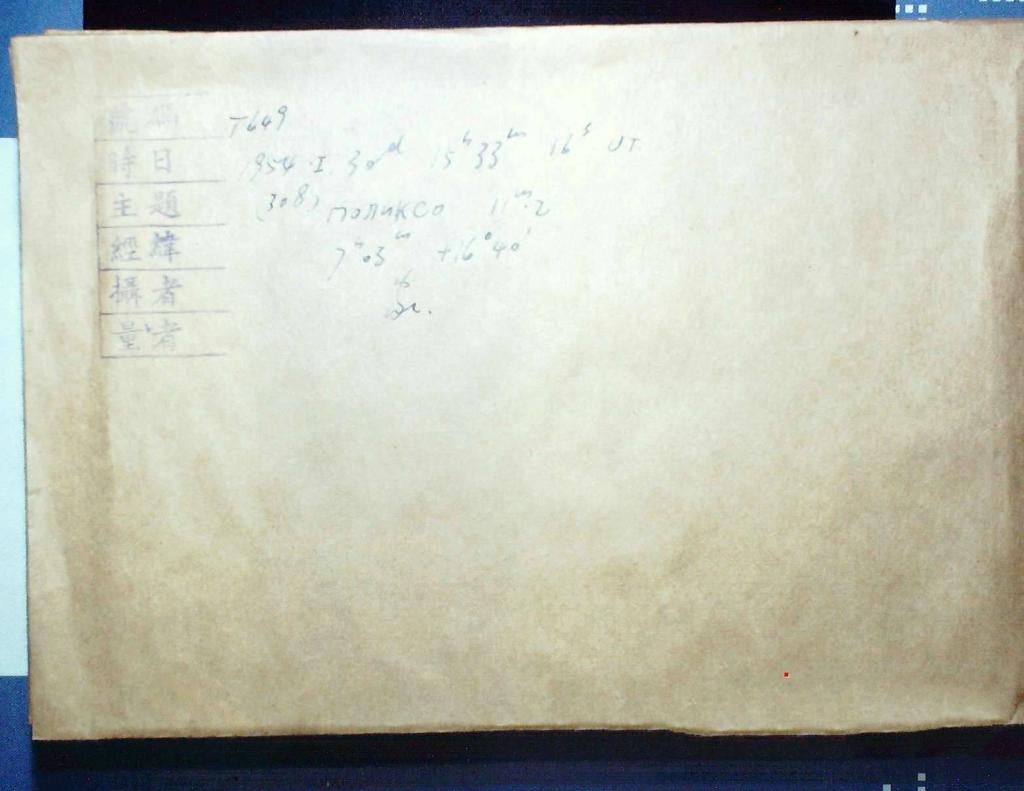 號碼 T649
時日 1954.I.30ᵈ 15ʰ33ᵐ 16ˢ UT.
主題 (308) Поликсо 11ᵐ.2
經緯 7ʰ03ᵐ +16°40′
攝者
量者